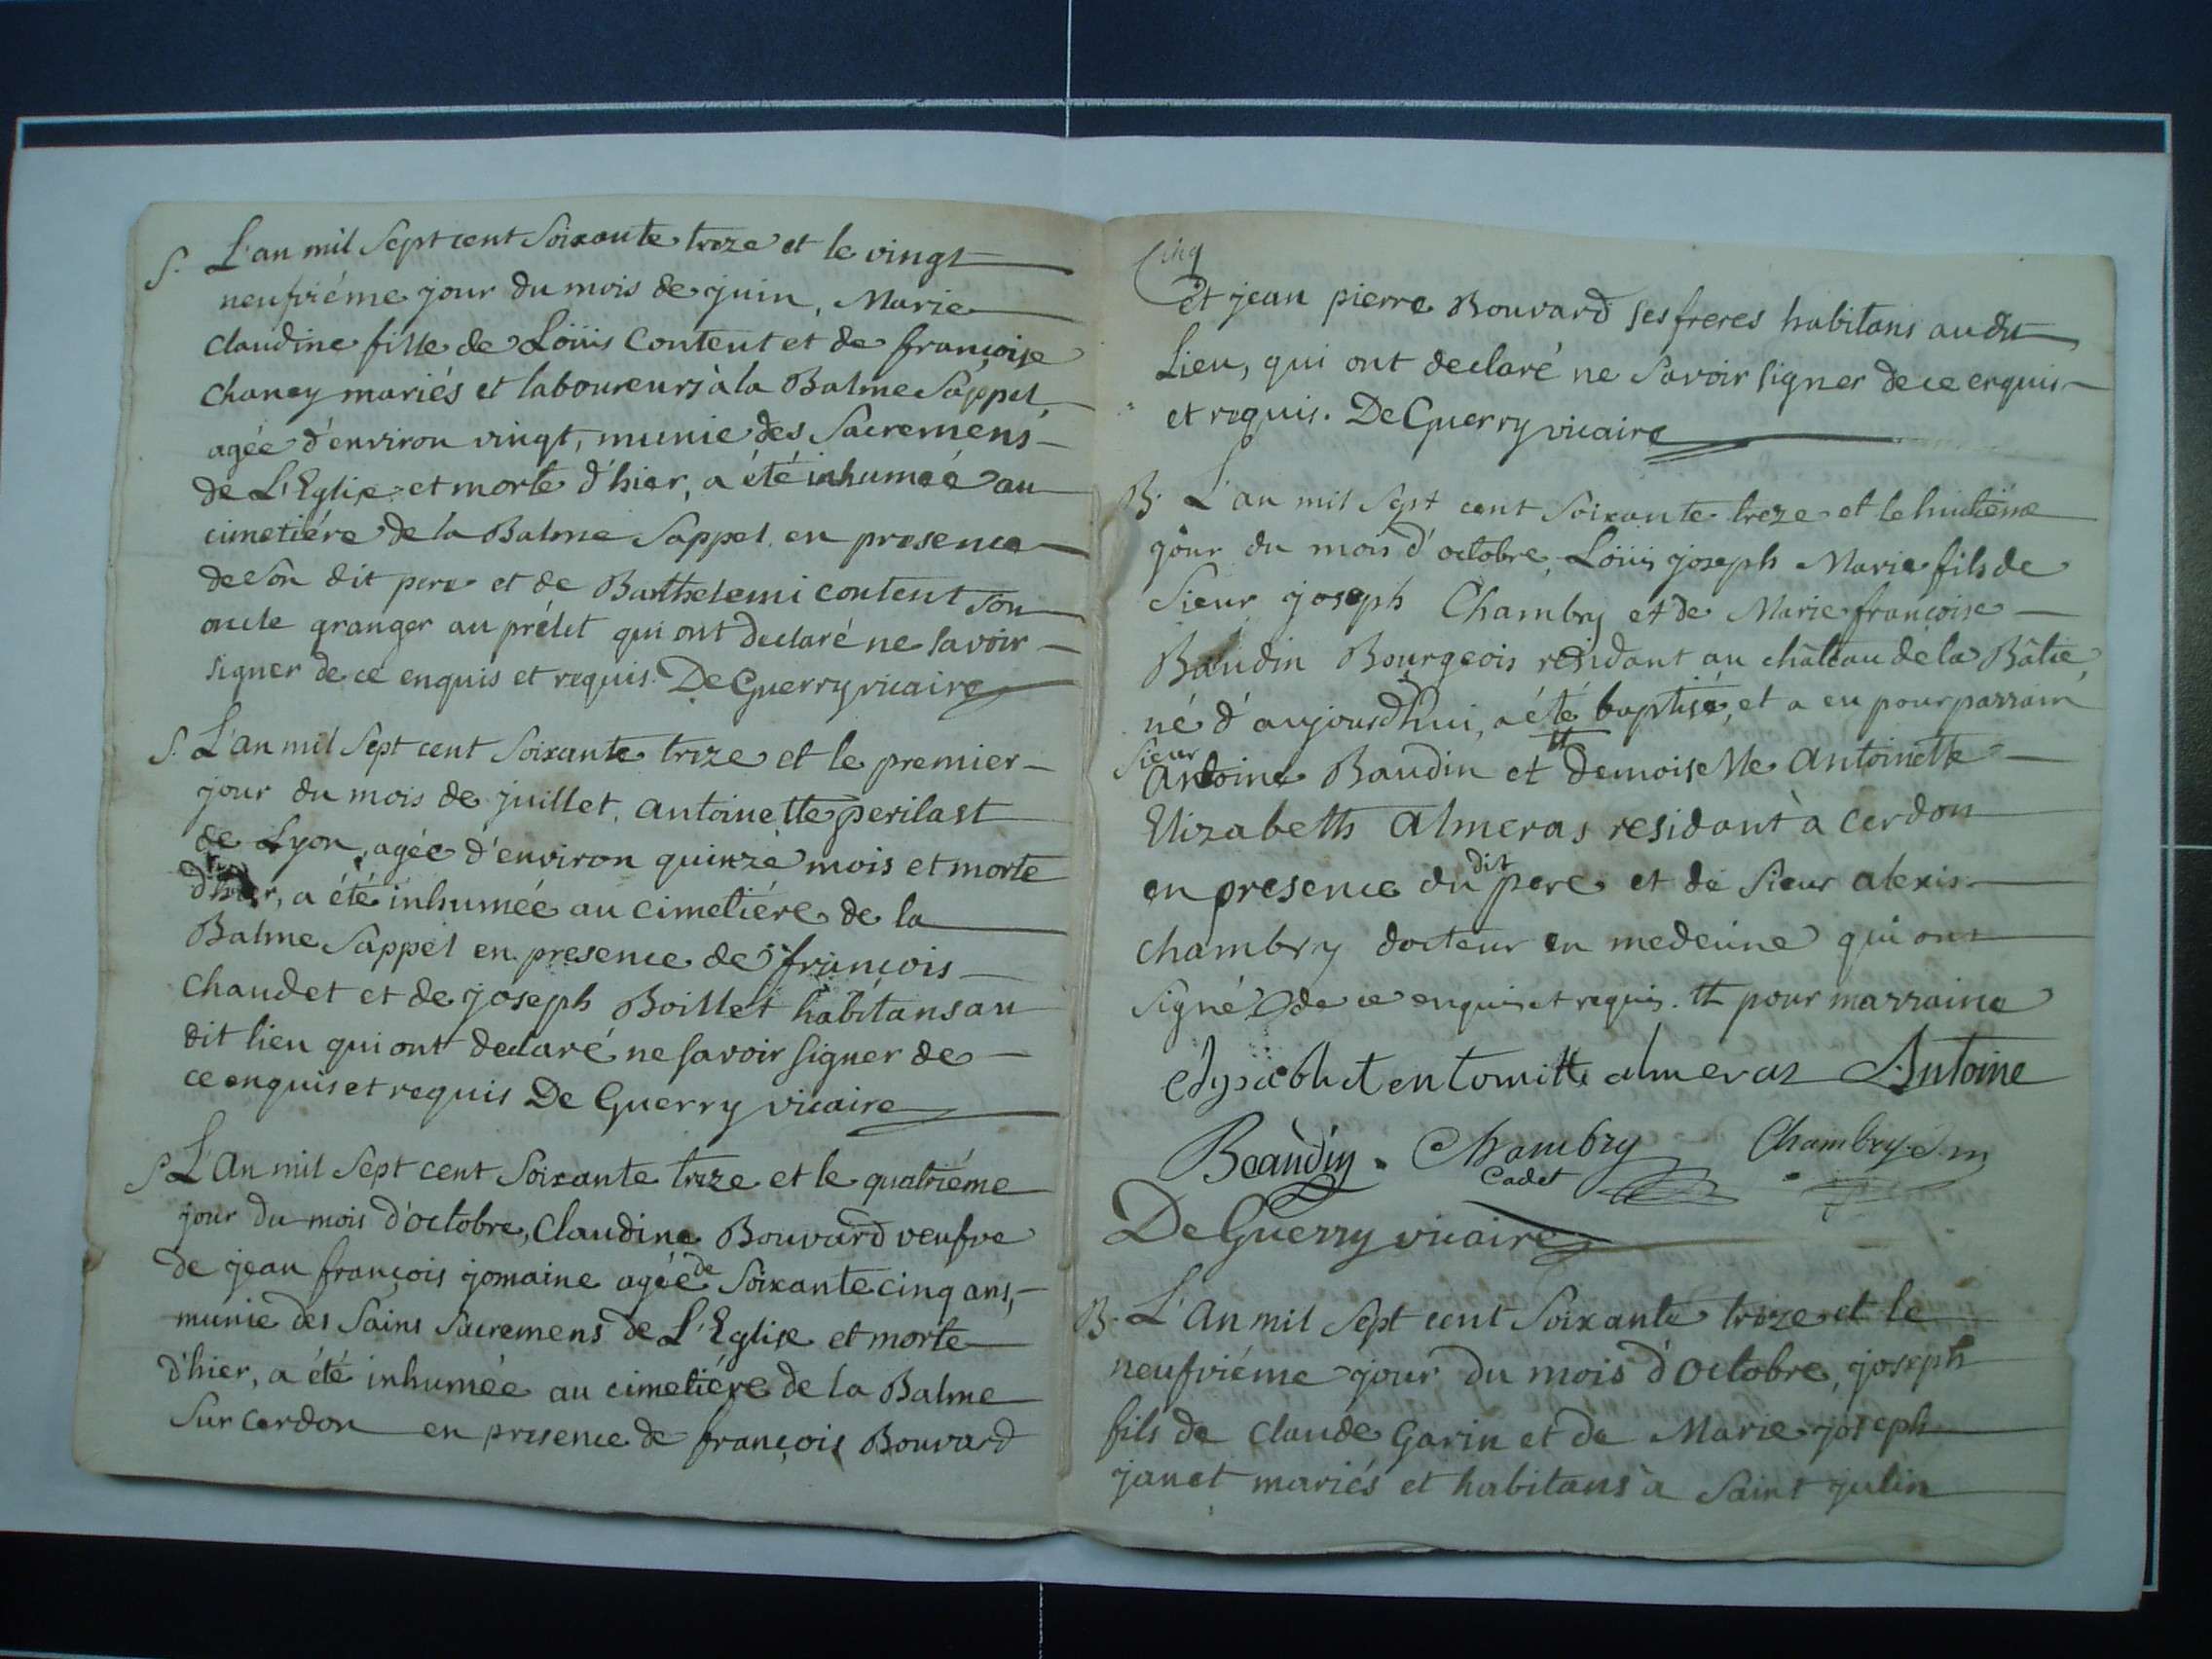 S. L'an mil sept cent soixante treze et le vingt
neufviéme jour du mois de juin, Marie
claudine fille de Loüis Content et de françoise
chaney mariés et laboureurs à la Balme Sappel,
agée d'environ vingt, munie des Sacremens
de L'Eglise et morte d'hier, a été inhumeé au
cimetiére de la Balme Sappel en presence
de son dit pere et de Barthelemi content son
oncle granger au prélet qui ont declaré ne savoir
signer de ce enquis et requis. De Guerry vicaire
S. L'an mil sept cent soixante treze et le premier
jour du mois de juillet, antoinette perilast
de Lyon, agée d'environ quinze mois et morte
d'hier, a été inhumée au cimetiére de la
Balme Sappel en presence de françois
chaudet et de joseph Boillet habitans au
dit lieu qui ont declaré ne savoir signer de
ce enquis et requis De Guerry vicaire
S. L'an mil sept cent soixante treze et le quatriéme
jour du mois d'octobre, Claudine Bouvard veufve
de jean françois jomaine agée de soixante cinq ans,
munie des sains sacremens de L'Eglise et morte
d'hier, a été inhumée au cimetiére de la Balme
sur cerdon en presence de françois Bouvard
Cinq
et jean pierre Bouvard ses freres habitans au dit
Lieu, qui ont declaré ne savoir signer de ce enquis
et requis. De Guerry vicaire
B. L'an mil sept cent soixante treze et le huitiéme
jour du mois d'octobre, Loüis joseph Marie fils de
sieur joseph Chambry et de Marie françoise
Baudin Bourgeois residant au château de la Bâtie,
né d'aujourdhui, a été baptisé, et a eu pour parrain
sieur
antoine Baudin et # demoiselle antoinette
Elizabeth almeras residant à cerdon
en presence du dit pere et de sieur alexis
chambry docteur en medecine qui ont
signé de ce enquis et requis. # pour marraine
elysabht entoinitte almeras Antoine
Beaudin. Chambry Chambry d. m
Cadet
De Guerry vicaire
B. L'an mil sept cent soixante treze et le
neufviéme jour du mois d'octobre, joseph
fils de claude Garin et de Marie joseph
janet mariés et habitans à saint julin